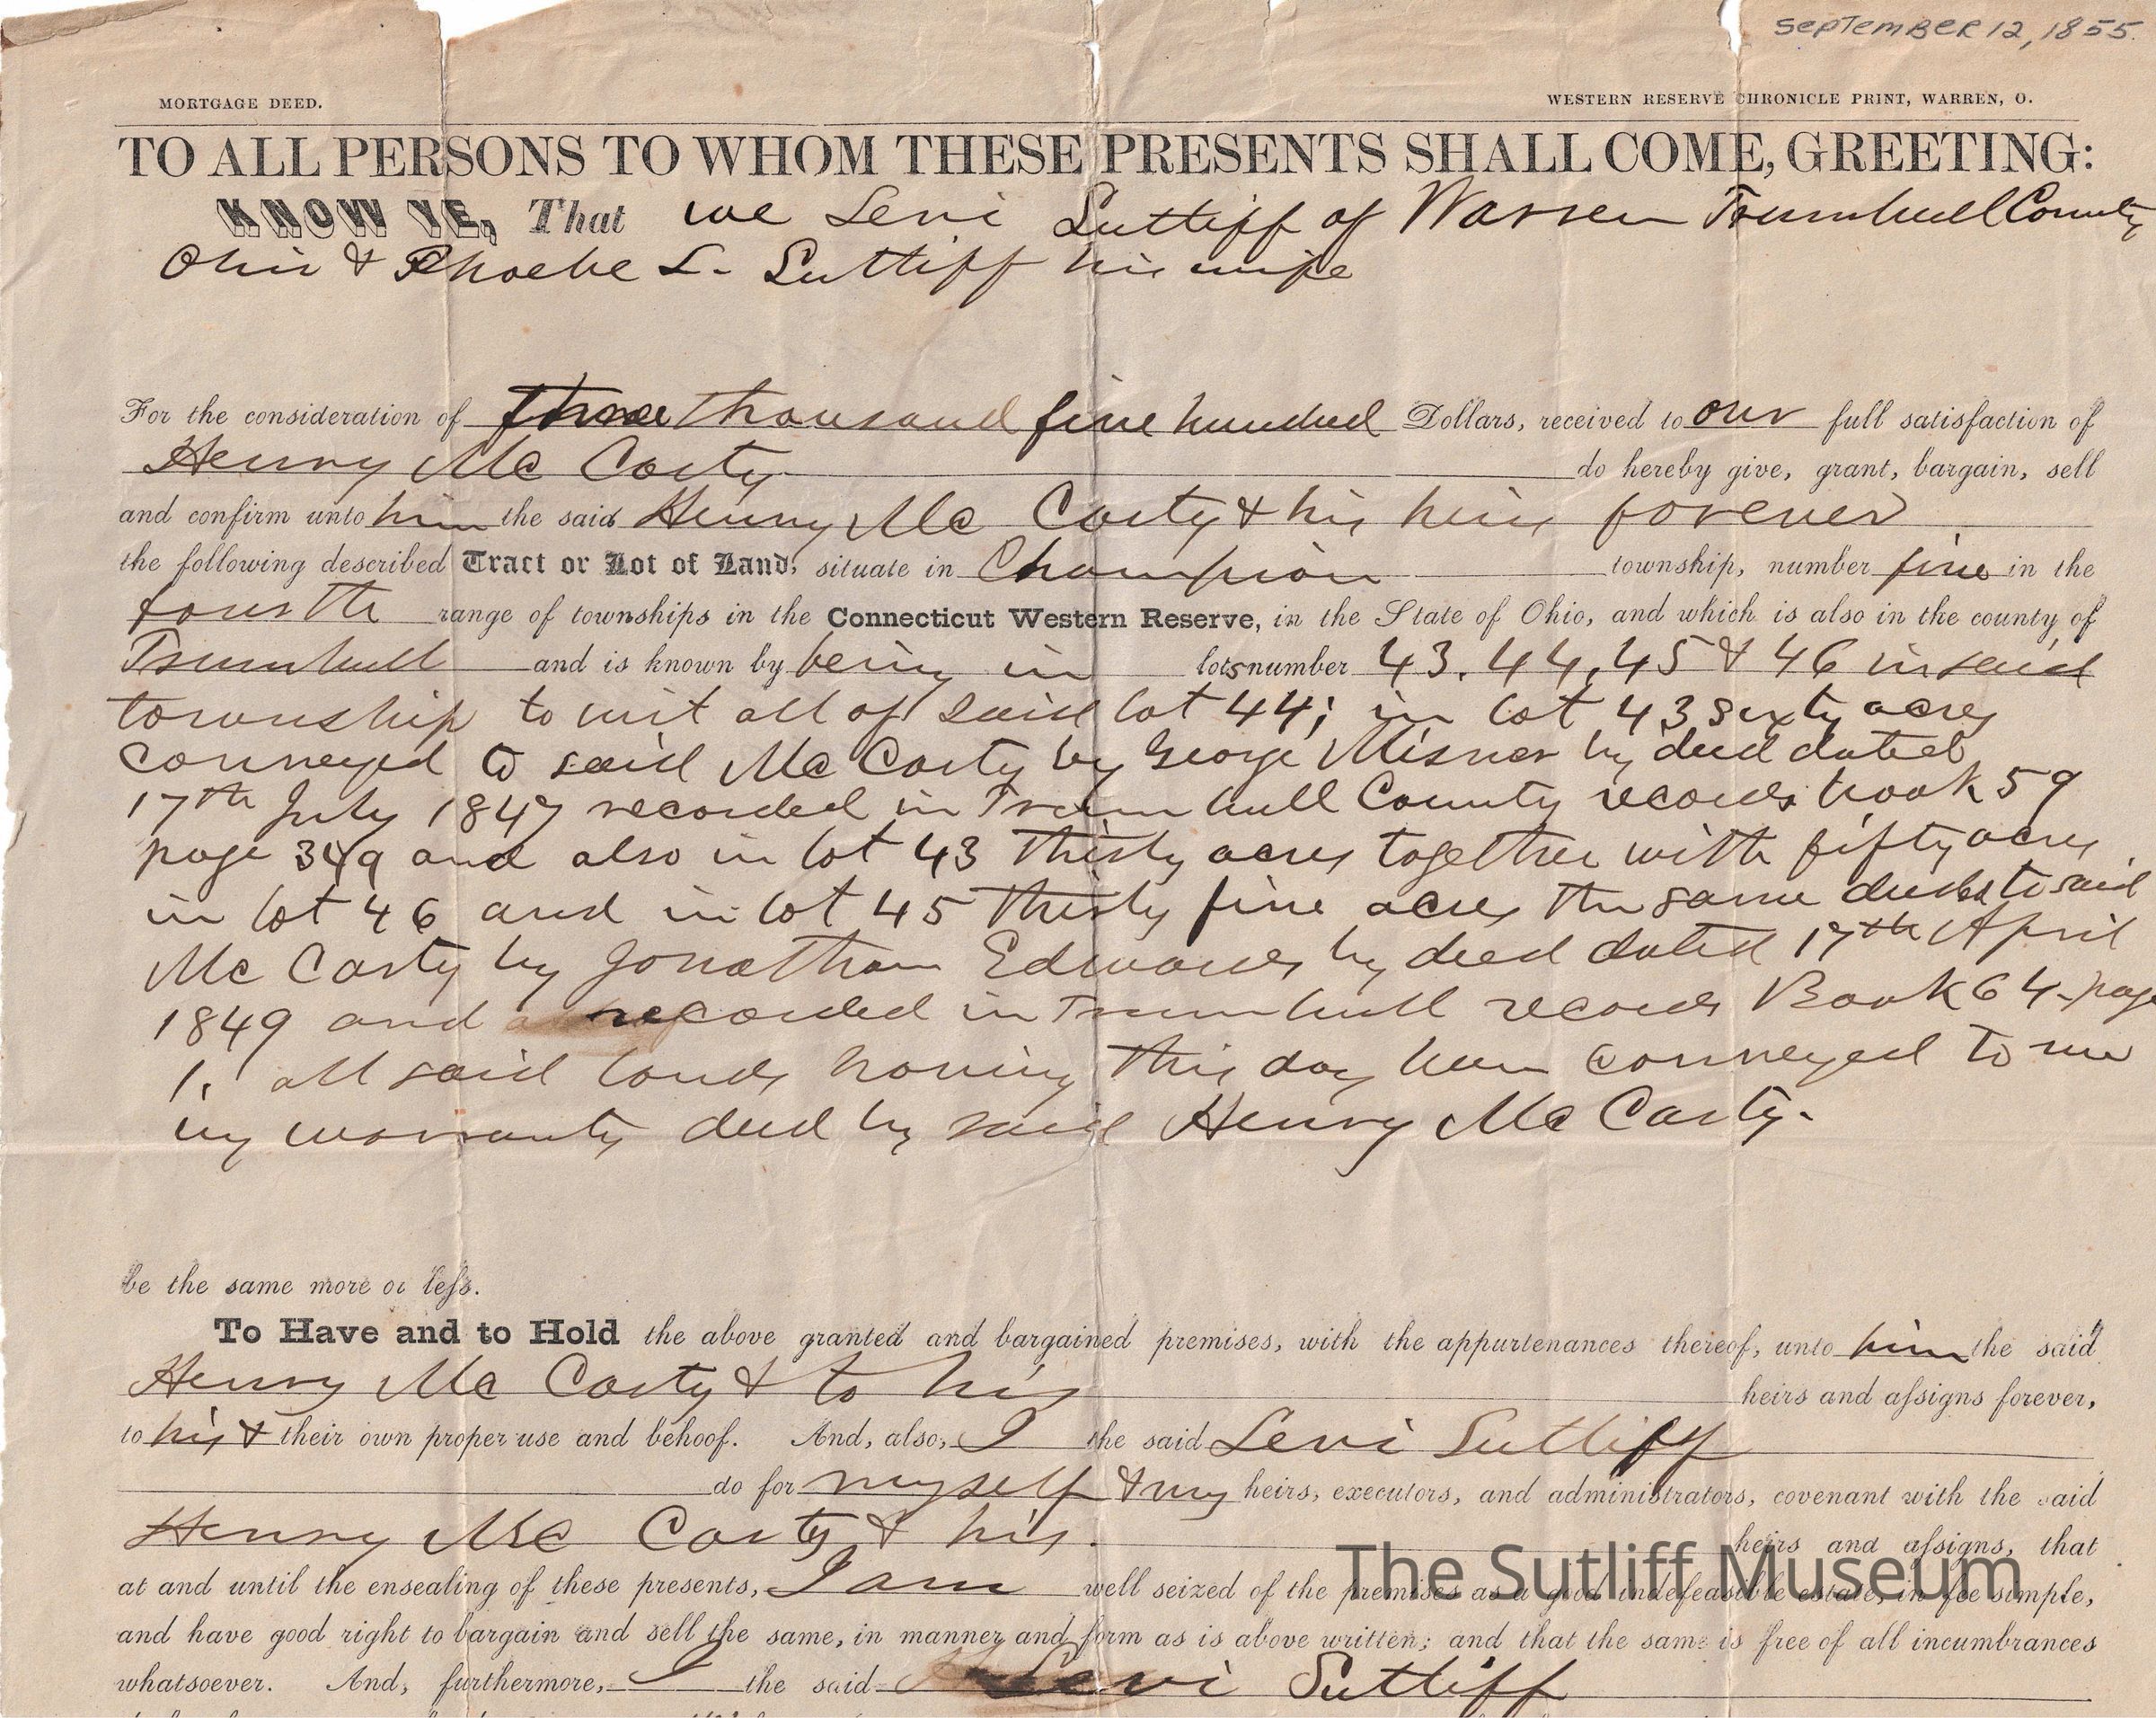 SEPTEMBER 12, 1855.
MORTGAGE DEED.
WESTERN RESERVE CHRONICLE PRINT, WARREN, O.
TO ALL PERSONS TO WHOM THESE PRESENTS SHALL COME, GREETING:
KNOW YE, That we Levi Sutliff of Warren Trumbull County
Ohio & Phoebe L. Sutliff his wife
For the consideration of three thousand five hundred Dollars, received to our full satisfaction of
Henry Mc Carty do hereby give, grant, bargain, sell
and confirm unto him the said Henry Mc Carty & his heirs forever
the following described Tract or Lot of Land, situate in Champion township, number five in the
fourth range of townships in the Connecticut Western Reserve, in the State of Ohio, and which is also in the county of
Trumbull and is known by being in lots number 43. 44, 45 & 46 in said
township to wit all of said lot 44; in lot 43 sixty acres
conveyed to said Mc Carty by George Misner by deed dated
17th July 1847 recorded in Trumbull County records book 59
page 349 and also in lot 43 thirty acres together with fifty acres
in lot 46 and in lot 45 thirty five acres the same deeded to said
Mc Carty by Jonathan Edwards by deed dated 17th April
1849 and recorded in Trumbull records Book 64 page
1. all said lands having this day been conveyed to me
by warranty deed by said Henry Mc Carty.
be the same more or less.
To Have and to Hold the above granted and bargained premises, with the appurtenances thereof, unto him the said
Henry Mc Carty & to his heirs and assigns forever,
to his & their own proper use and behoof. And, also, I the said Levi Sutliff
do for myself & my heirs, executors, and administrators, covenant with the said
Henry Mc Carty & his heirs and assigns, that
at and until the ensealing of these presents, I am well seized of the premises as a good indefeasible estate, in fee simple,
and have good right to bargain and sell the same, in manner and form as is above written; and that the same is free of all incumbrances
whatsoever. And, furthermore, I the said Levi Sutliff
The Sutliff Museum